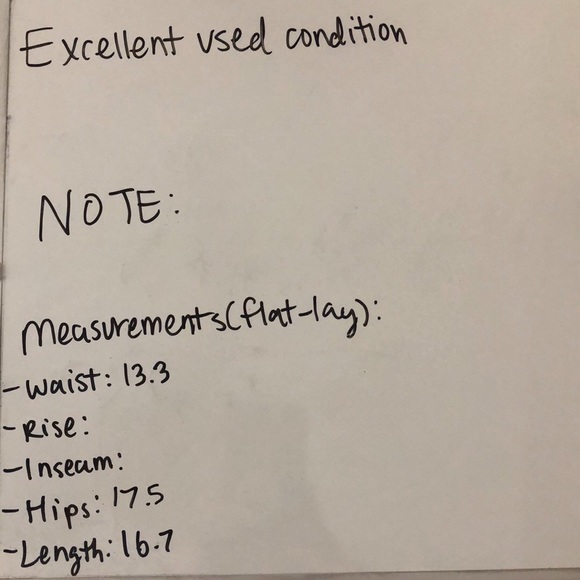 Excellent used condition
NOTE:
Measurements(flat-lay):
-Waist: 13.3
-Rise:
-Inseam:
-Hips: 17.5
-Length: 16.7